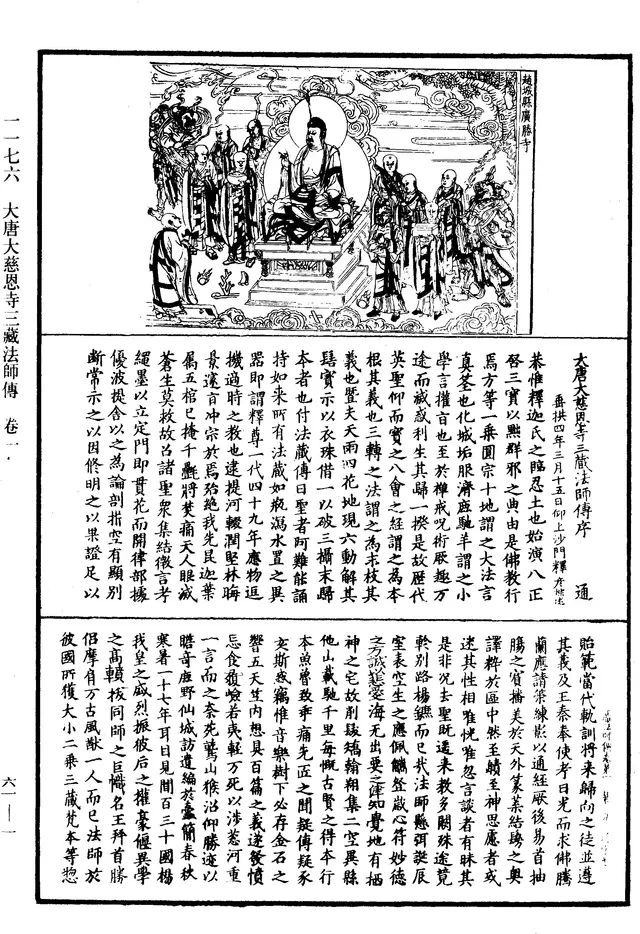 趙城縣廣勝寺
一一七六　大唐大慈恩寺三藏法師傳　卷一
六一——一
大唐大慈恩寺三藏法師傳序　通
垂拱四年三月十五日仰上沙門釋彥悰述
恭惟釋迦氏之臨忍土也始演八正
啓三寶以黜群邪之典由是佛教行
焉方等一乘圓宗十地謂之大法言
真筌也化城垢服濟鹿馳羊謂之小
學言權旨也至於禪戒呪術厥趣万
途而滅惑利生其歸一揆是故歷代
英聖仰而寶之八會之經謂之為本
根其義也三轉之法謂之為末枝其
義也暨夫天雨四花地現六動解其
髻寶示以衣珠借一以破三攝末歸
本者也付法藏傳曰聖者阿難能誦
持如來所有法藏如瓶瀉水置之異
器即謂釋尊一代四十九年應物逗
機適時之教也逮提河輟潤堅林晦
景邃旨冲宗於焉殆絕我先昆迦葉
屬五棺已掩千㲲將焚痛天人眼滅
蒼生莫救故召諸聖衆集結微言考
繩墨以立定門即貫花而開律部據
優波提舍以之為論剖析空有顯別
斷常示之以因修明之以果證足以
貽範當代軌訓將來歸向之徒並遵
其義及王秦奉使考日光而求佛騰
蘭應請策練影以通經厥後易首抽
腸之賓播美於天外篆葉結鬘之奧
譯粹於區中然至賾至神思慮者或
迷其性相唯恍唯惚言談者有昧其
是非况去聖既遥来教多闕殊途競
軫別路揚鑣而已哉法師懸弭誕辰
室表空生之應佩觿登歲心符妙德
之誠慈愛海無出要之津知覺地有栖
神之宅故削髮矯翰翔集二空異縣
他山載馳千里每慨古賢之得本行
本魚魯致乖痛先匠之聞疑傳疑豕
亥斯惑竊惟音樂樹下必存金石之
響五天竺内想具百篇之義遂發憤
忘食履險若夷輕万死以涉葱河重
一言而之柰苑鷲山猴沼仰勝迹以
瞻奇鹿野仙城訪遺編於蠹簡春秋
寒暑一十七年耳目見聞百三十國揚
我皇之盛烈振彼后之權豪偃異學
之高轒拔同師之巨幟名王拜首勝
侣摩肩万古風猷一人而已法師於
彼國所獲大小二乘三藏梵本等惣